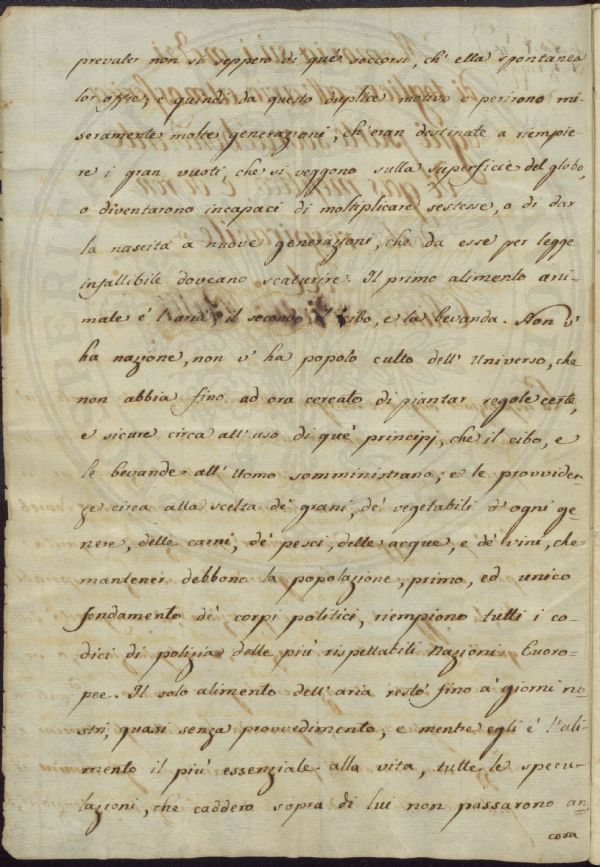 prevaler non si seppero di que' soccorsi, ch' ella spontanea
lor offre; e quindi da questo duplice motivo o perirono mi-
seramente molte generazioni, ch' eran destinate a riempie-
re i gran vuoti, che si veggono sulla superficie del globo,
o diventarono incapaci di moltiplicare sestesse, o di dar
la nascita a nuove generazioni, che da esse per legge
infallibile doveano scaturire. Il primo alimento ani-
male è l'aria, il secondo il cibo, e la bevanda. Non v'
ha nazione, non v' ha popolo culto dell' Universo, che
non abbia fino ad ora cercato di piantar regole certe,
e sicure circa all' uso di que' principj, che il cibo, e
le bevande all' Uomo somministrano; e le provviden-
ze circa alla scelta de' grani, de' vegetabili d' ogni ge-
nere, delle carni, de' pesci, delle acque, e de' vini, che
mantener debbono la popolazione, primo, ed unico
fondamento de' corpi politici, riempiono tutti i co-
dici di polizia delle più rispettabili Nazioni Euoro-
pee. Il solo alimento dell' aria restò fino a' giorni no-
stri, quasi senza provvedimento, e mentre egli è l' ali-
mento il più essenziale alla vita, tutte le specu-
lazioni, che caddero sopra di lui non passarono an-
cora